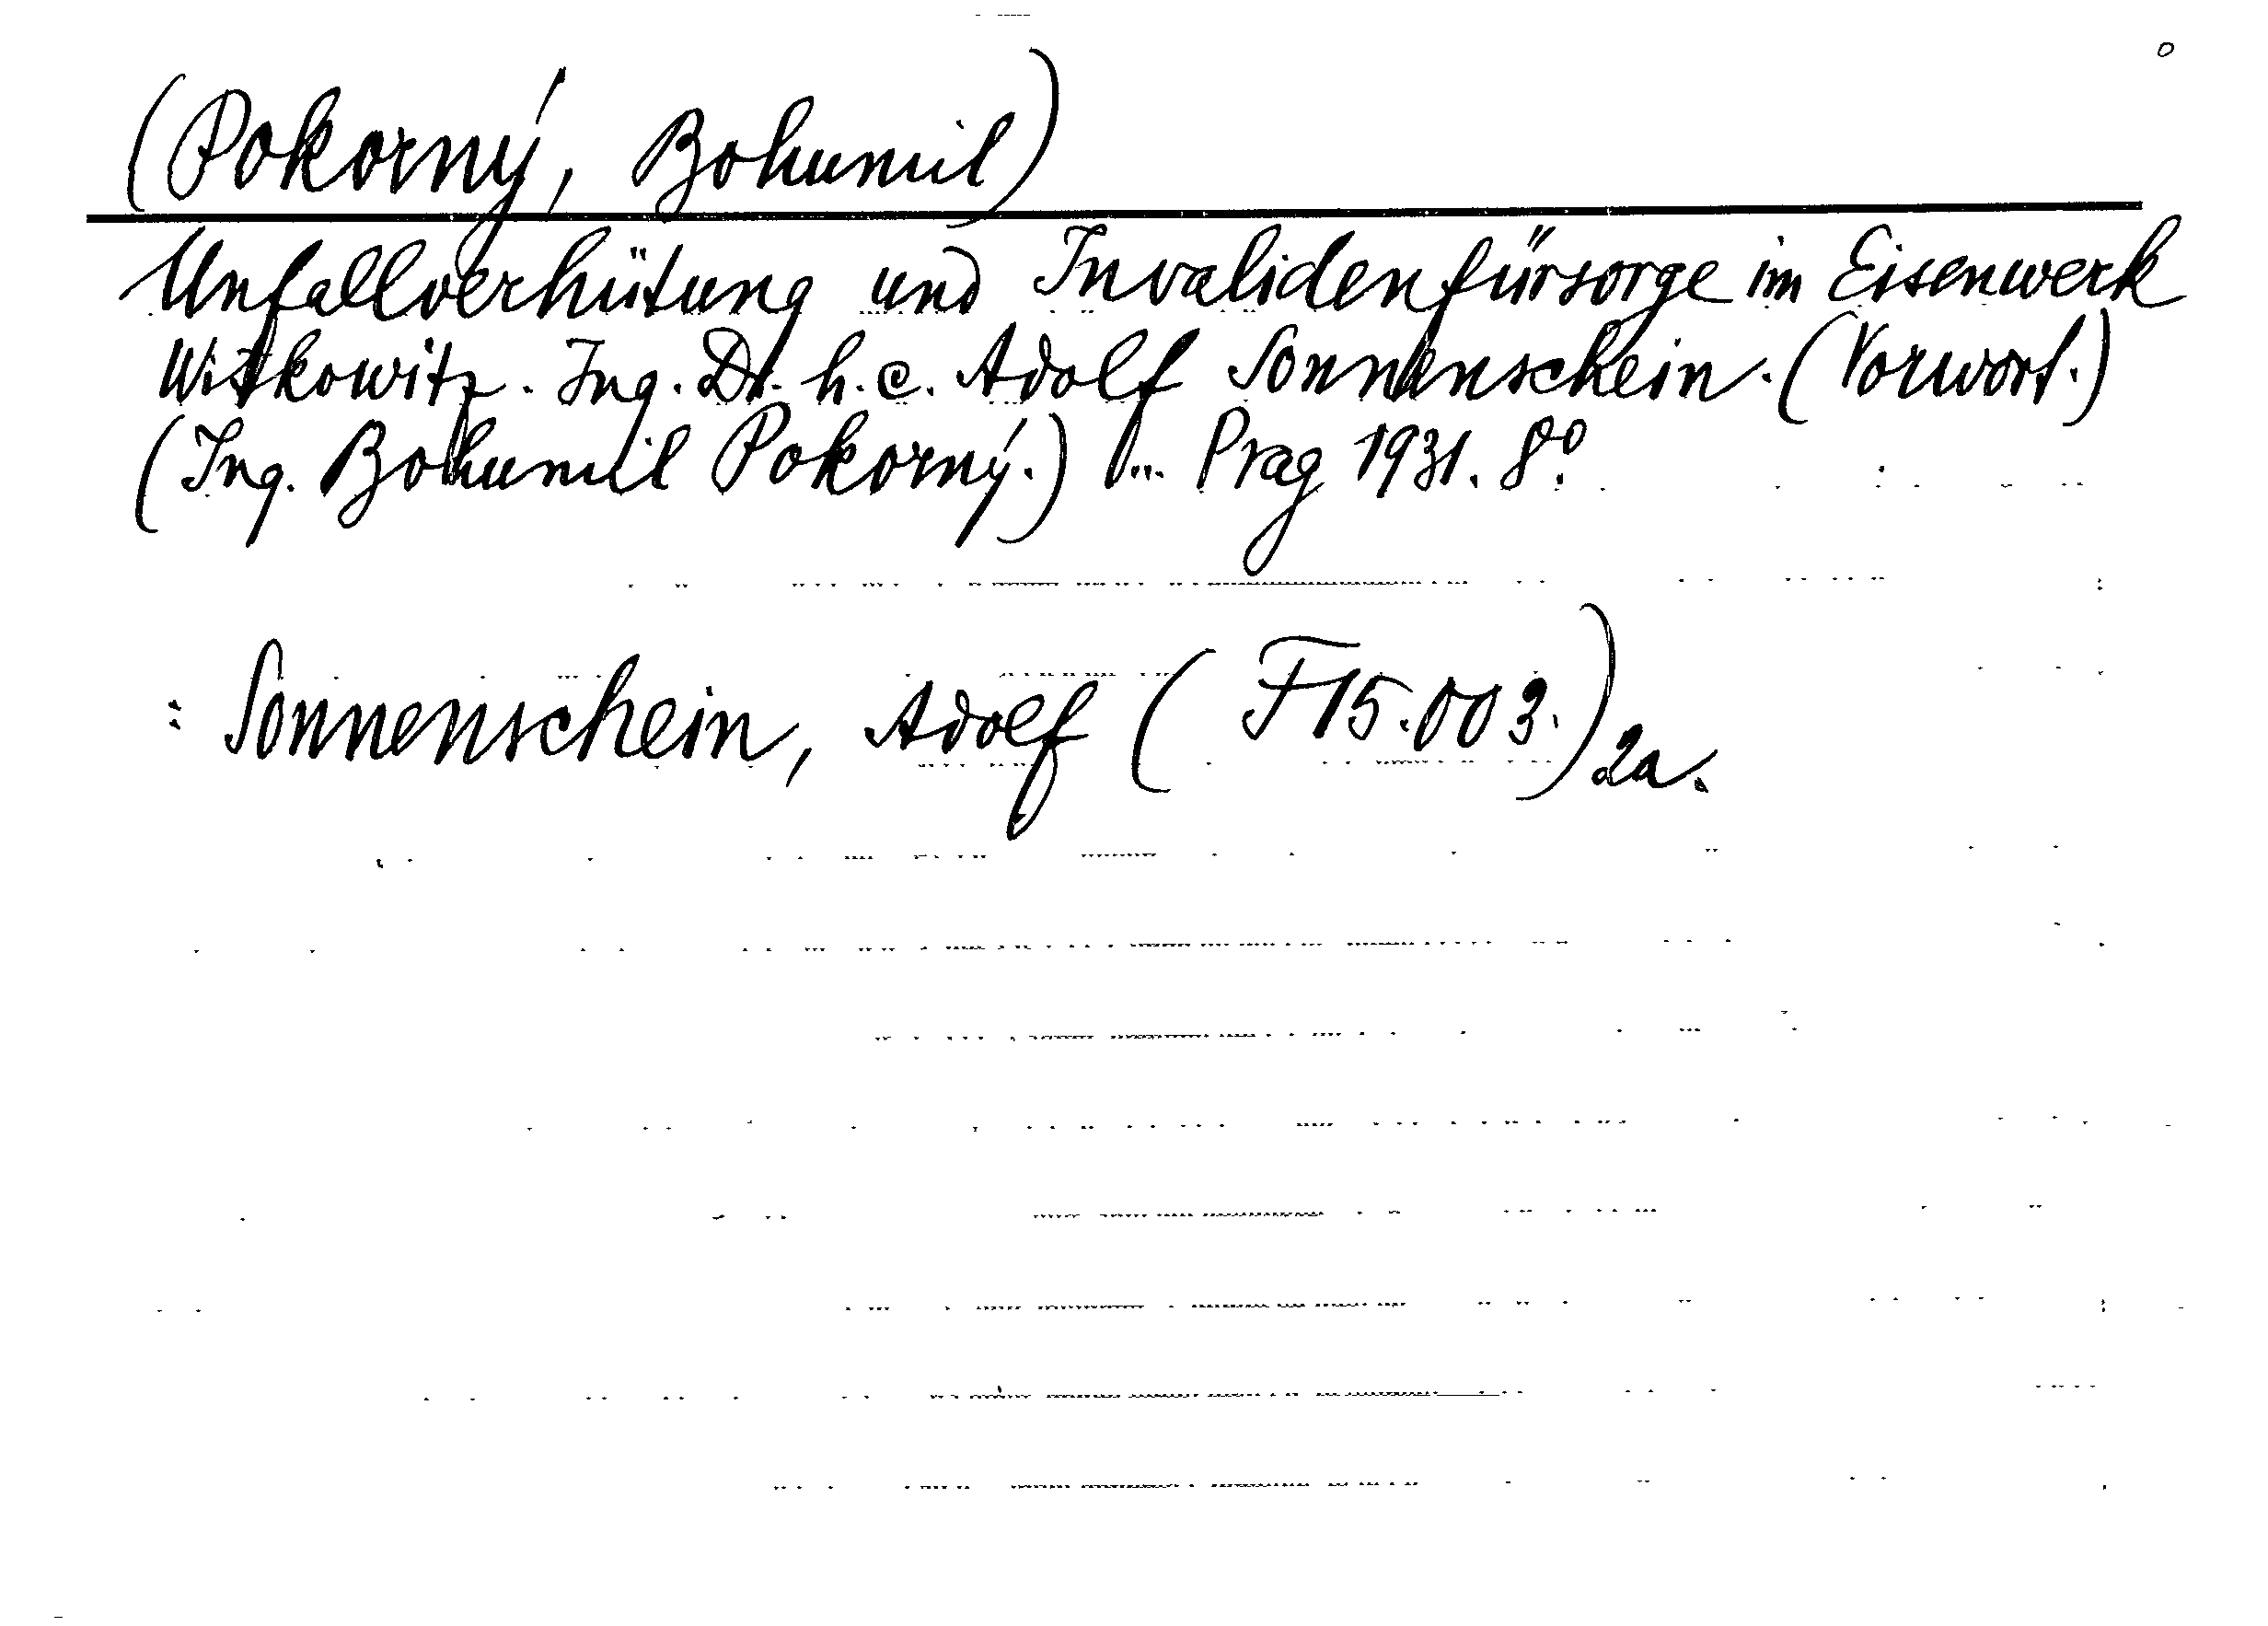 (Pokorný, Bohumil)
Unfallverhütung und Invalidenfürsorge im Eisenwerk
Witkowitz. Ing. Dr. h. c. Adolf Sonnenschein. (Vorwort.)
(Ing. Bohumil Pokorný.) ... Prag 1931. 8°.
: Sonnenschein, Adolf (F15.003.) 2a.